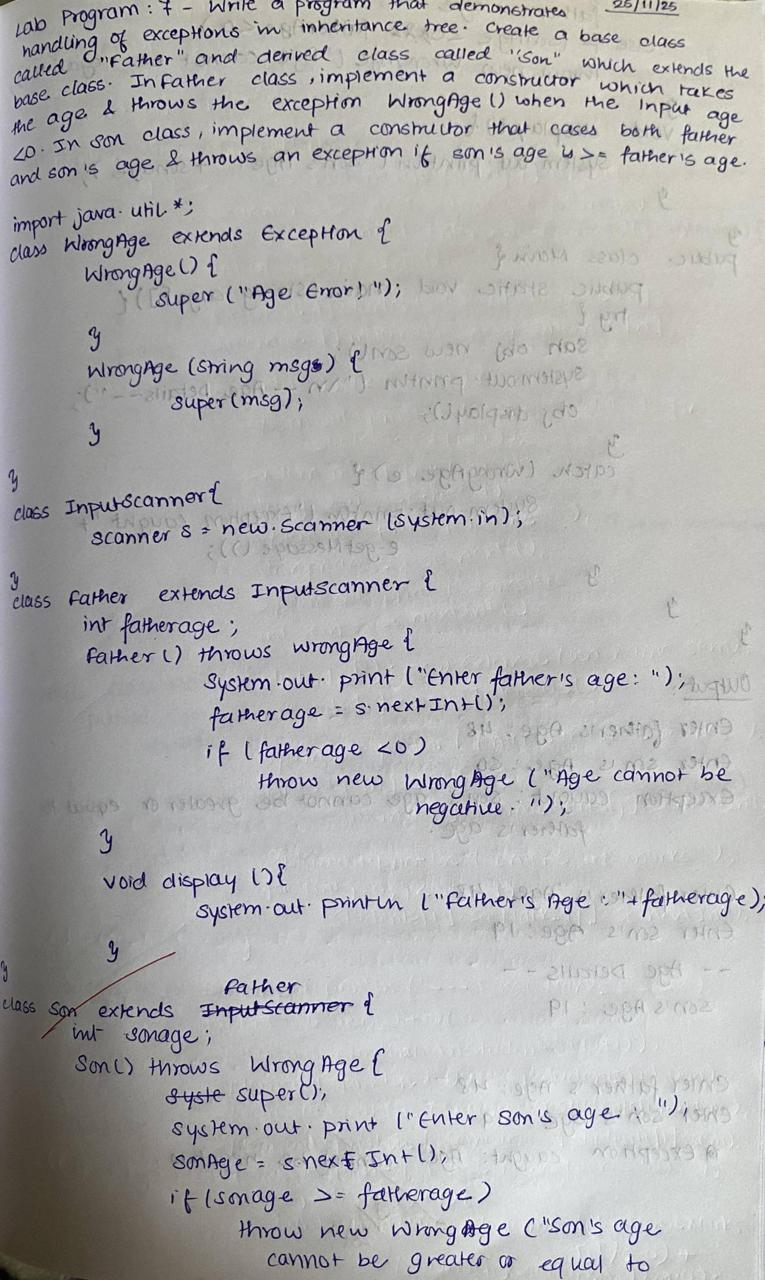 25/11/25
Lab Program : 7 - Write a program that demonstrates
handling of exceptions in inheritance tree. Create a base class
called "Father" and derived class called "Son" which extends the
base class. In father class, implement a constructor which takes
the age & throws the exception WrongAge () when the input age
<0. In son class, implement a constructor that cases both father
and son's age & throws an exception if son's age is >= father's age.
import java.util.*;
class WrongAge extends Exception {
WrongAge() {
super ("Age Error!");
}
WrongAge (String msgs) {
super(msg);
}
}
class InputScanner{
Scanner s = new.Scanner (System.in);
}
class Father extends InputScanner {
int fatherage ;
Father () throws WrongAge {
System.out.print ("Enter father's age: ");
fatherage = s.nextInt();
if (fatherage <0)
throw new WrongAge ("Age cannot be
negative. ");
}
void display (){
System.out.println ("Father's Age :"+fatherage);
}
}
Father
class Son extends InputScanner {
int sonage ;
Son() throws WrongAge {
syste super();
System.out.print ("Enter son's age ");
sonAge = s.nextInt();
if (sonage >= fatherage)
throw new WrongAge ("Son's age
cannot be greater or equal to